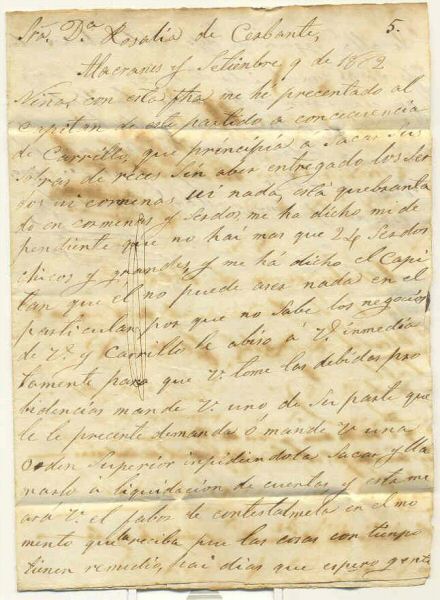 Sra. Da. Rosalia de Cerbantes, 5.
Alacranes y Setiembre 9 de 1862
Niña con esta fha me he precentado al
Capitan de este partido a concecuencia
de Carrillo, que principia á Sacar sus
de reces Sin aber entregado los Ser
dos ni corminas ni nada, está quebranta
do en cormenas y Serdos me ha dicho mi de
pendiente que no hai mas que 24 Serdos
chicos y grandes, y me há dicho el Capi
tan que el no puede aser nada en el
particular por que no Sabe los negocios
de V. y Carrillo le abiso á V. inmedia
tamente para que V. tome las debidas pro
bidencias mande V. uno de Su parte que
le le precente demanda ó mande V. una
Orden Superior inpidiendola Sacar y lla
marlo á liquidacion de cuentas y esta me
ara V. el fabor de contestalmela en el mo
mento que la reciba pue las cosas con tienpo
tienen remedio, hai dias que espero gente